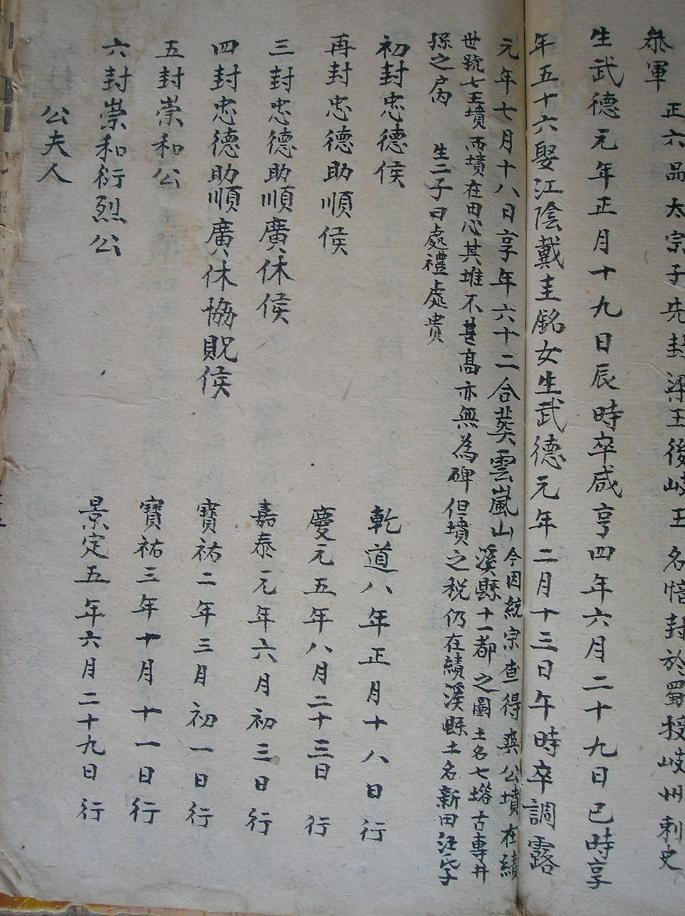 叅軍 正六品太宗子先封梁王後岐王名愔封於蜀授岐州刺史
生武德元年正月十九日辰時卒咸亨四年六月二十九日巳時享
年五十六娶江陰戴圭銘女生武德元年二月十三日午時卒調露
元年七月十八日享年六十二合葬雲嵐山 今因統宗查得奭公墳在績
溪縣十一都之圖土名七塔古專井
世號七王墳兩墳在田心其堆不甚高亦無為碑但墳之稅仍在績溪縣土名新田汪
孫之戶 生二子曰處禮處貴
初封忠德侯 乾道八年正月十八日行
再封忠德助順侯 慶元五年八月二十三日行
三封忠德助順廣休侯 嘉泰元年六月初三日行
四封忠德助順廣休協貺侯 寶祐二年三月初一日行
五封崇和公 寶祐三年十月十一日行
六封崇和衍烈公 景定五年六月二十九日行
公夫人